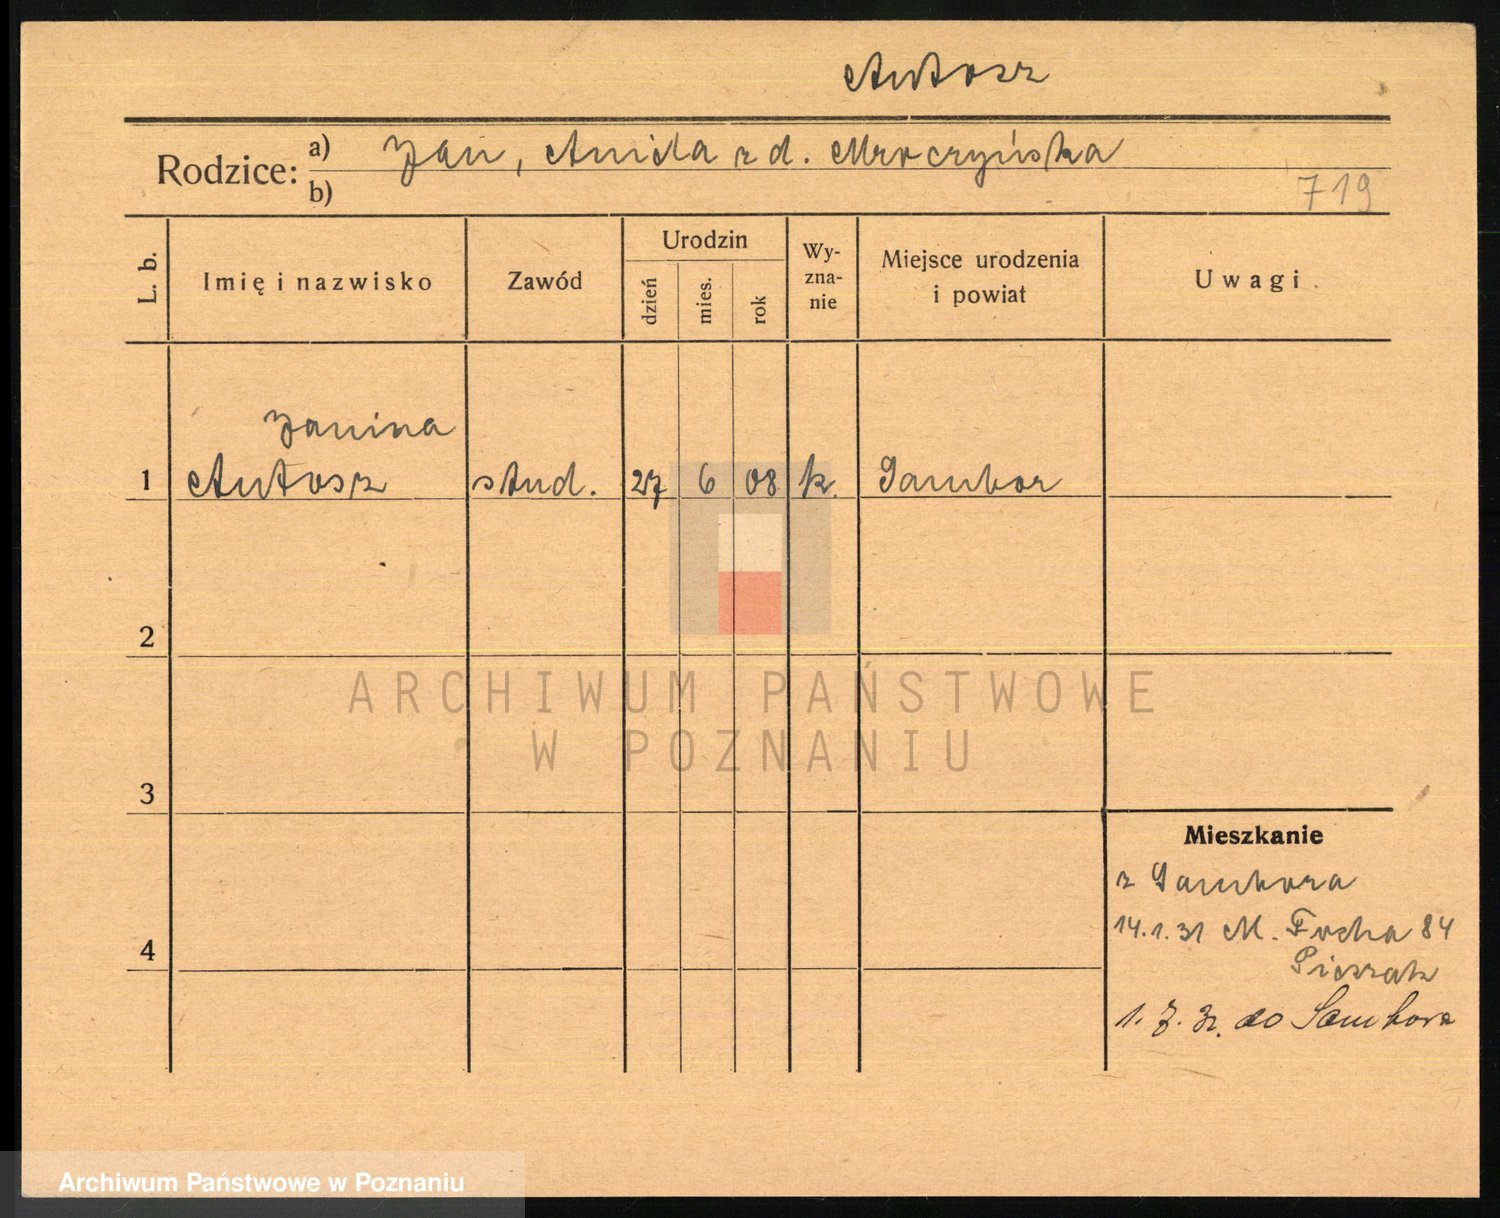 Antosz
Rodzice: a) Jan, Aniela z d. Mroczyńska
b)
719
L. b. Imię i nazwisko Zawód Urodzin dzień mies. rok Wy-zna-nie Miejsce urodzenia i powiat Uwagi
Janina
1 Antosz stud. 27 6 08 k. Sambor
2
ARCHIWUM PAŃSTWOWE
W POZNANIU
3
Mieszkanie
z Sambora
4
14.1.31 M. Focha 84
Pieszak
1.7.31. do Sambora
Archiwum Państwowe w Poznaniu